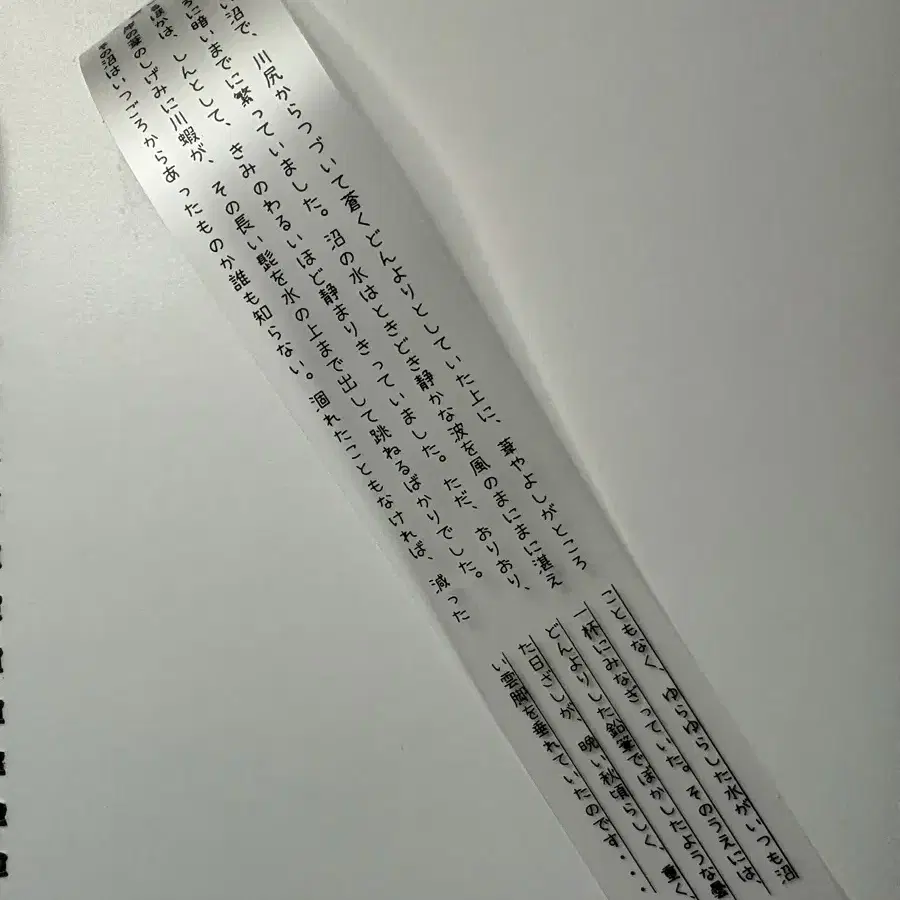 い沼で、川尻からつづいて蒼くどんよりとしていた上に、葦やよしがところ
ろに暗いまでに繁っていました。沼の水はときどき静かな波を風のまにまに湛え
るほかは、しんとして、きみのわるいほど静まりきっていました。ただ、おりおり、
の葦のしげみに川蝦が、その長い髭を水の上まで出して跳ねるばかりでした。
その沼はいつごろからあったものか誰も知らない。涸れたこともなければ、減った
こともなく、ゆらゆらした水がいつも沼
一杯にみなぎっていた。そのうえには、
どんよりした鉛筆でぼかしたような曇
た日ざしが、晩い秋頃らしく、重く
い雲脚を垂れていたのです・・・